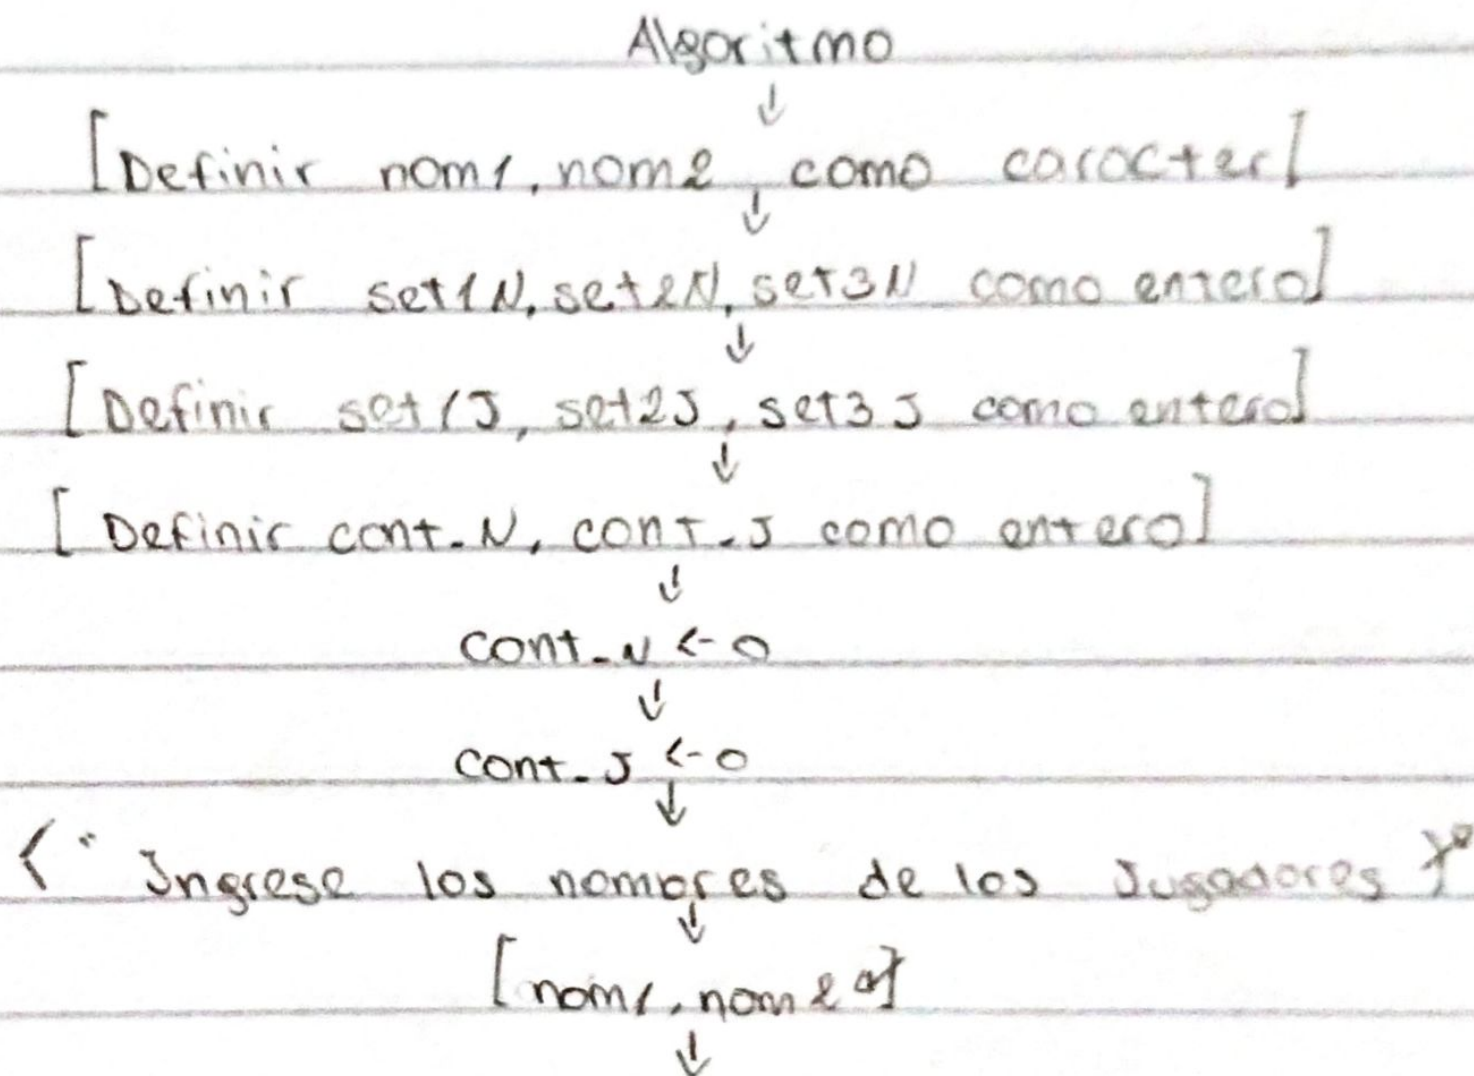 Algoritmo
↓
[Definir nom1, nom2, como caracter]
↓
[Definir set1N, set2N, set3N como entero]
↓
[Definir set1J, set2J, set3J como entero]
↓
[Definir cont_N, cont_J como entero]
↓
cont_N <- 0
↓
cont_J <- 0
↓
<" Ingrese los nombres de los Jugadores
↓
[nom1, nom2
↓